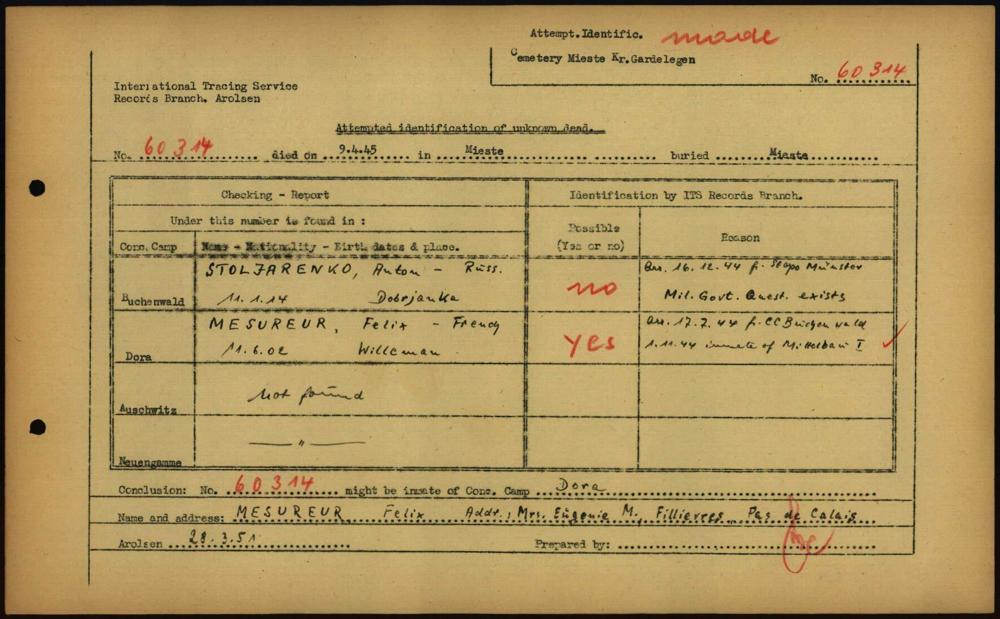 Attempt.Identific. made
Cemetery Mieste Kr.Gardelegen
No. 60 314
International Tracing Service
Records Branch. Arolsen
Attempted identification of unknown dead.
No. 60 314 died on 9.4.45 in Mieste buried Mieste
Checking - Report
Identification by ITS Records Branch.
Under this number is found in :
Conc. Camp
Name - Nationality - Birth dates & place.
Possible (Yes or no)
Reason
Buchenwald
STOLJARENKO, Anton - Russ.
11.1.14 Dobrjanka
no
arr. 16.12.44 fr. Stapo Münster
Mil. Govt. Quest. exists
Dora
MESUREUR, Felix - French
11.6.02 Willeman
yes
arr. 17.7.44 fr. CC Buchenwald
1.11.44 inmate of Mittelbau I
Auschwitz
Not found
Neuengamme
— " —
Conclusion: No. 60314 might be inmate of Conc. Camp Dora
Name and address: MESUREUR Felix Addr.: Mrs. Eugenie M. Fillievres Pas de Calais
Arolsen 28.3.51 Prepared by: